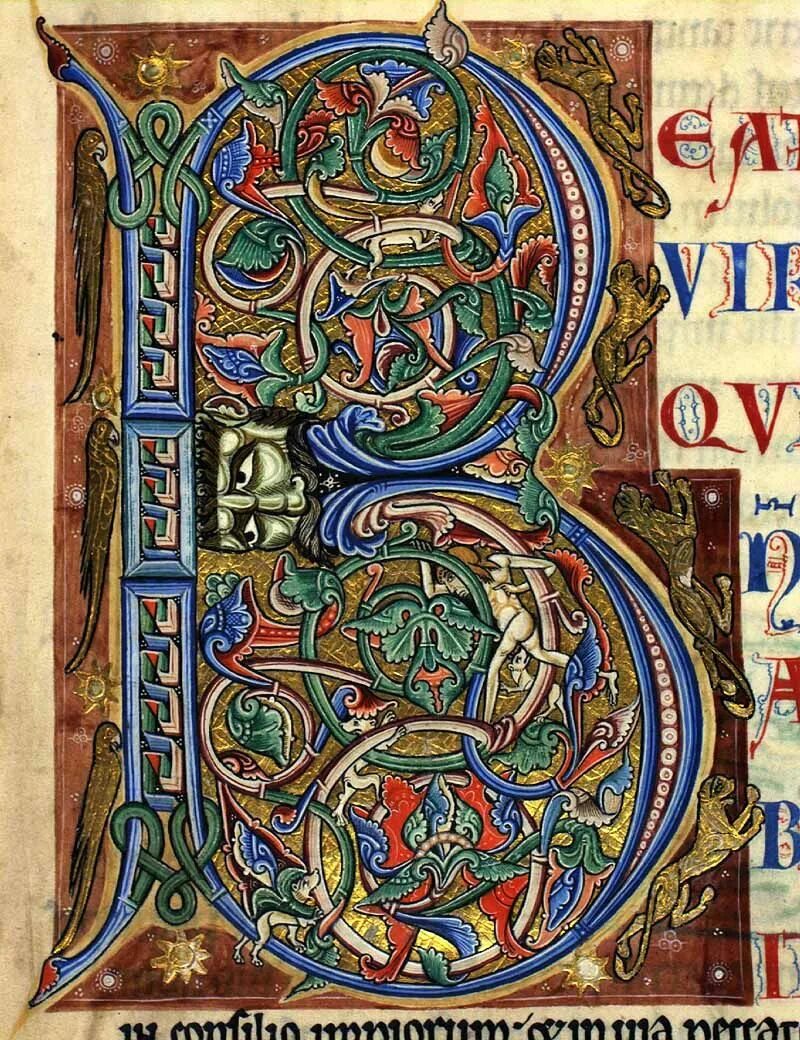 B
EA
VIR
QVI
N
A
B
I
in consilio impiorum· & in via peccat